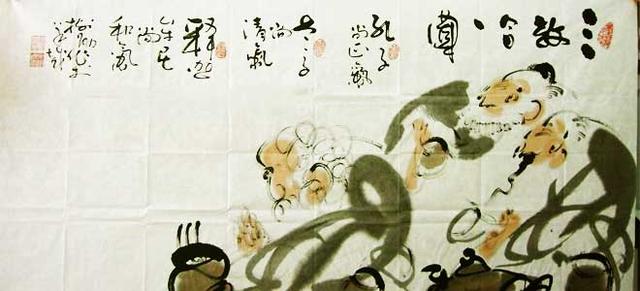 三教合一圖
孔子
尚正氣
老子
尚
清氣
釋迦
牟尼
尚
和氣